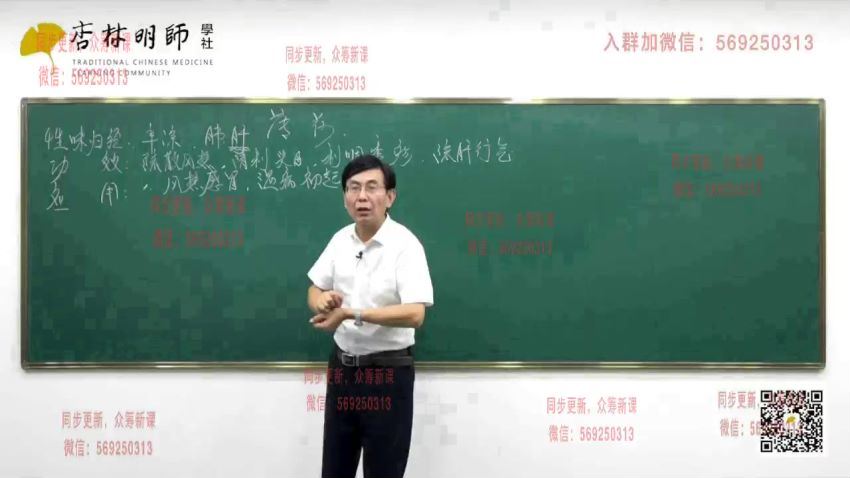 杏林明師 學社
TRADITIONAL CHINESE MEDICINE
LEARNING COMMUNITY
同步更新，众筹新课
微信：569250313
同步更新，众筹新课
微信：569250313
入群加微信：569250313
薄荷
性味归经：辛凉．肺肝
功效：疏散风热，清利头目，利咽透疹．疏肝行气
应用：1．风热感冒，温病初起
同步更新，众筹新课
微信：569250313
同步更新，众筹新课
微信：569250313
同步更新，众筹新课
微信：569250313
同步更新，众筹新课
微信：569250313
同步更新，众筹新课
微信：569250313
同步更新，众筹新课
微信：569250313
同步更新，众筹新课
微信：56